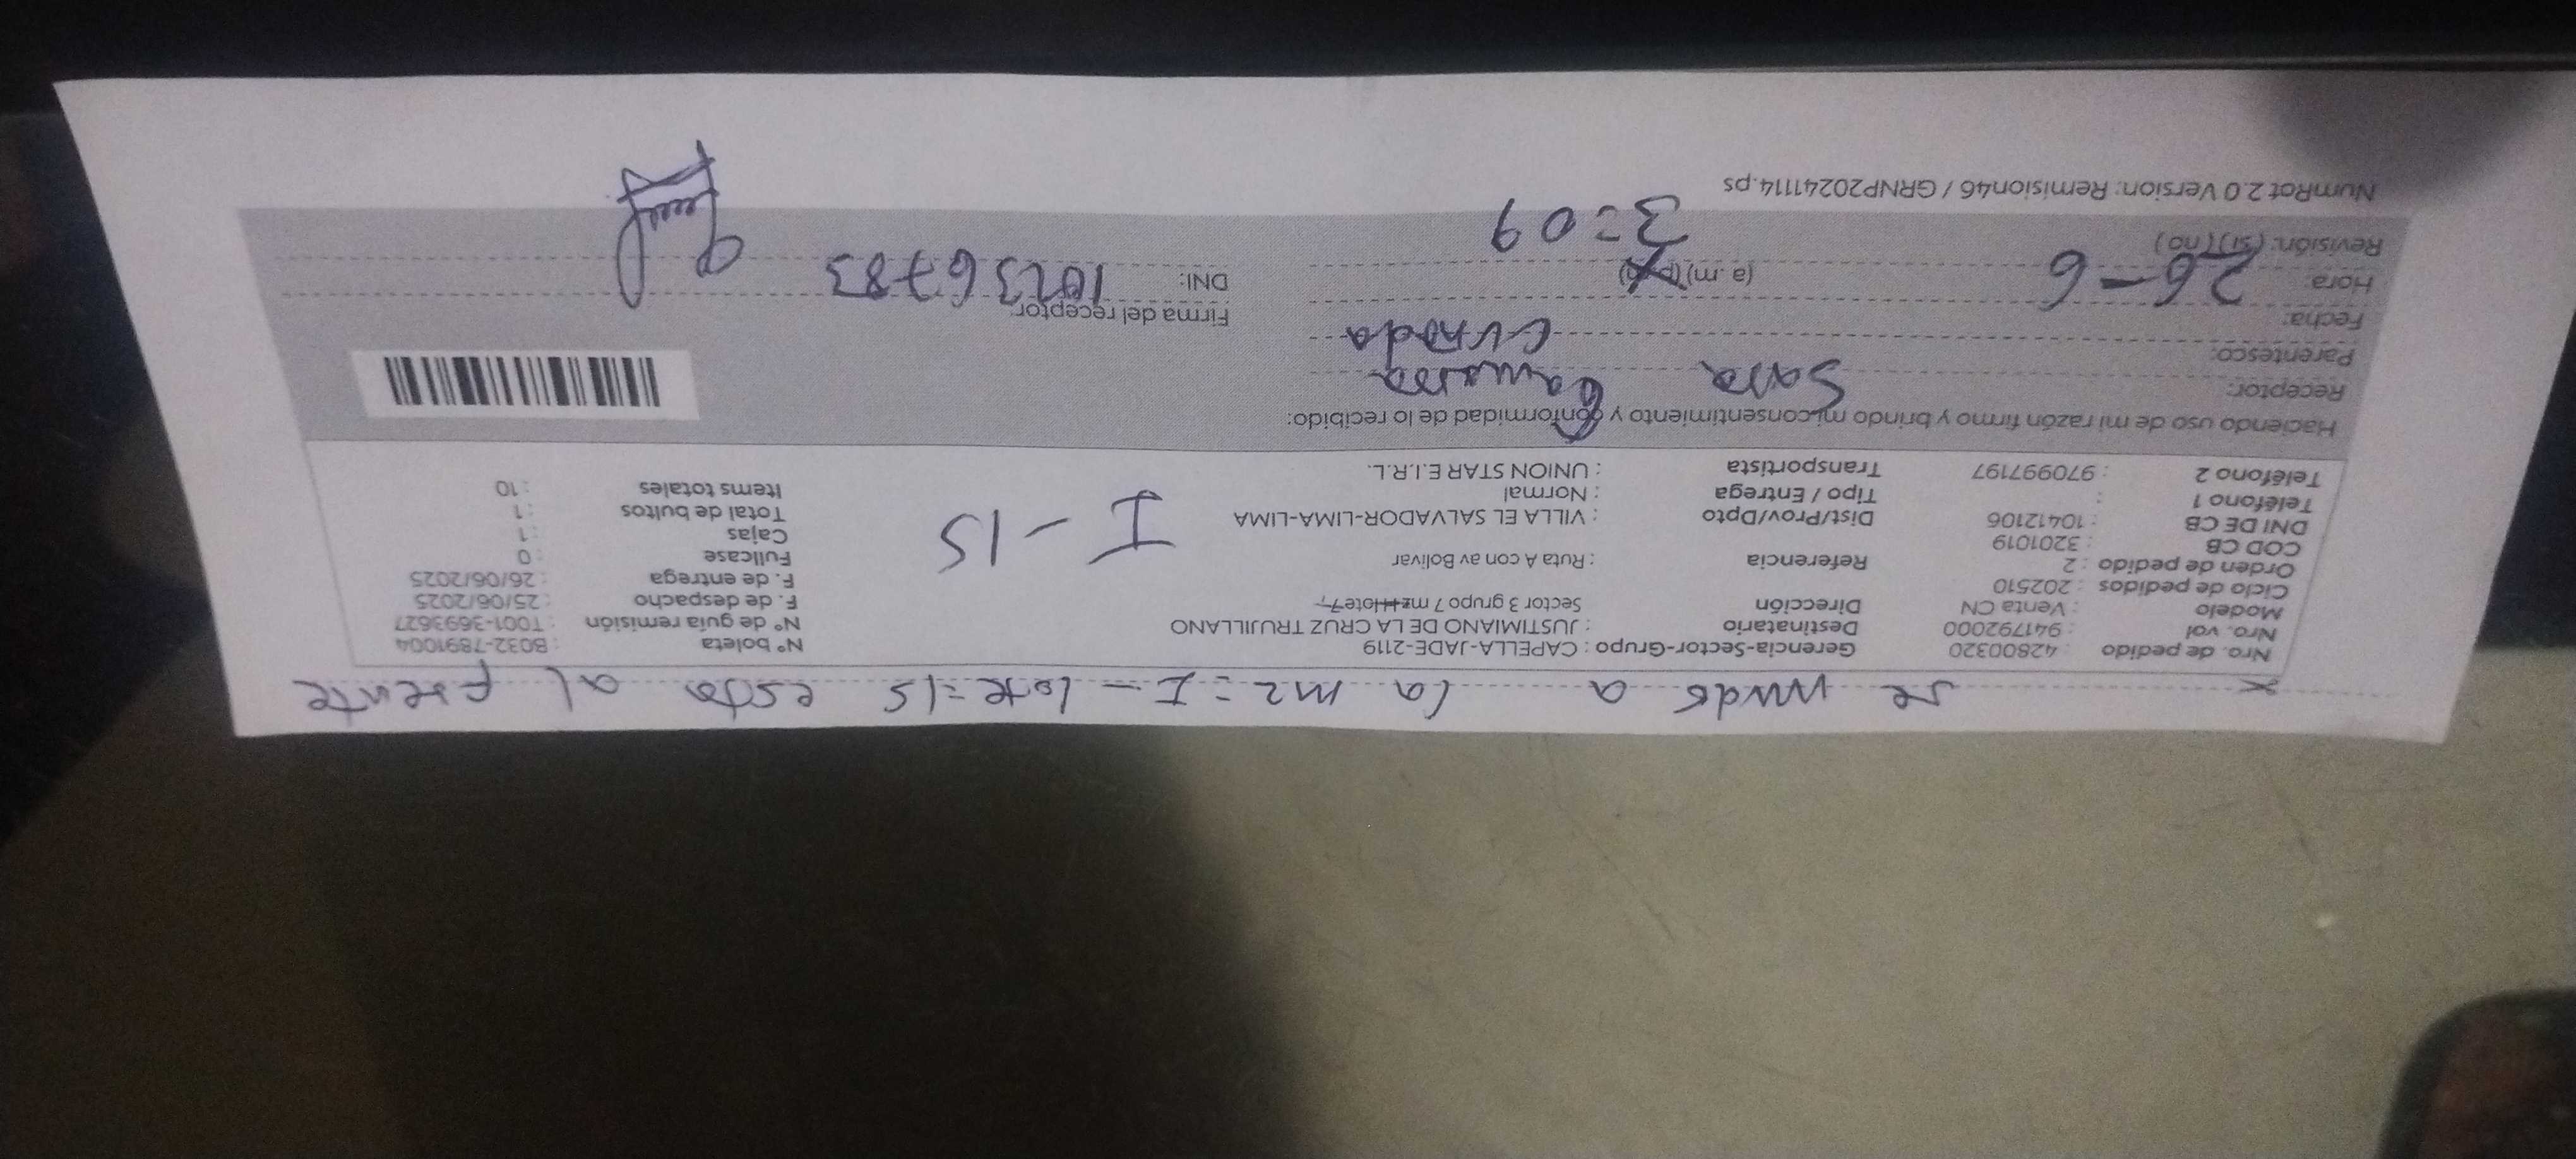 x se mudó a la mz = I - lote = 15 esta al frente
Nro. de pedido : 42800320 Gerencia-Sector-Grupo : CAPELLA-JADE-2119 N° boleta : B032-7891004
Nro. vol : 941792000 Destinatario : JUSTIMIANO DE LA CRUZ TRUJILLANO N° de guía remisión : T001-3693627
Modelo : Venta CN Dirección Sector 3 grupo 7 mz H lote 7, F. de despacho : 25/06/2025
Ciclo de pedidos : 202510 F. de entrega : 26/06/2025
Orden de pedido : 2 Referencia : Ruta A con av Bolivar Fullcase : 0
COD CB : 3201019 Cajas : 1
DNI DE CB : 10412106 Dist/Prov/Dpto : VILLA EL SALVADOR-LIMA-LIMA I - 15 Total de bultos : 1
Teléfono 1 : Tipo / Entrega : Normal Items totales : 10
Teléfono 2 : 970997197 Transportista : UNION STAR E.I.R.L.
Haciendo uso de mi razón firmo y brindo mi consentimiento y conformidad de lo recibido:
Receptor: Sara Gamarra
Parentesco: Cuñada
Fecha: Firma del receptor:
Hora: 26-6 (a .m) (p.m) DNI: 10236783
Revisión: (si) (no) 3=09
NumRot 2.0 Version: Remision46 / GRNP20241114.ps